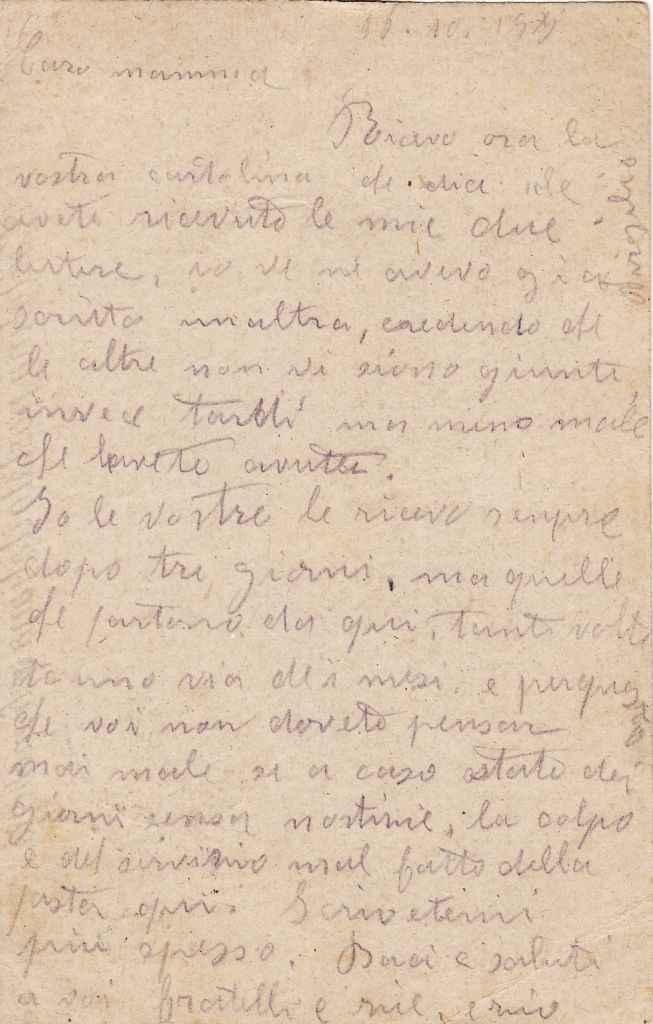 Caro mamma
Ricevo ora la
vostra cartolina che dice che
avete ricevuto le mie due
letere, io ve ne avevo già
scritta unaltra, credendo che
le altre non vi siano giunte,
invece tardi ma meno male
che lavete avute.
Io le vostre le ricevo senpre
dopo tre giorni, ma quelle
che partono da qui, tante volte
sta uno via dei mesi. e perquesto
che voi non dovete pensar
mai male se a caso state dei
giorni sensa nostizie, la colpa
e del servizio mal fatto della
posta qui. Scrivetemi
piu spesso. Baci e saluti
a voi fratelli e
Virgilio